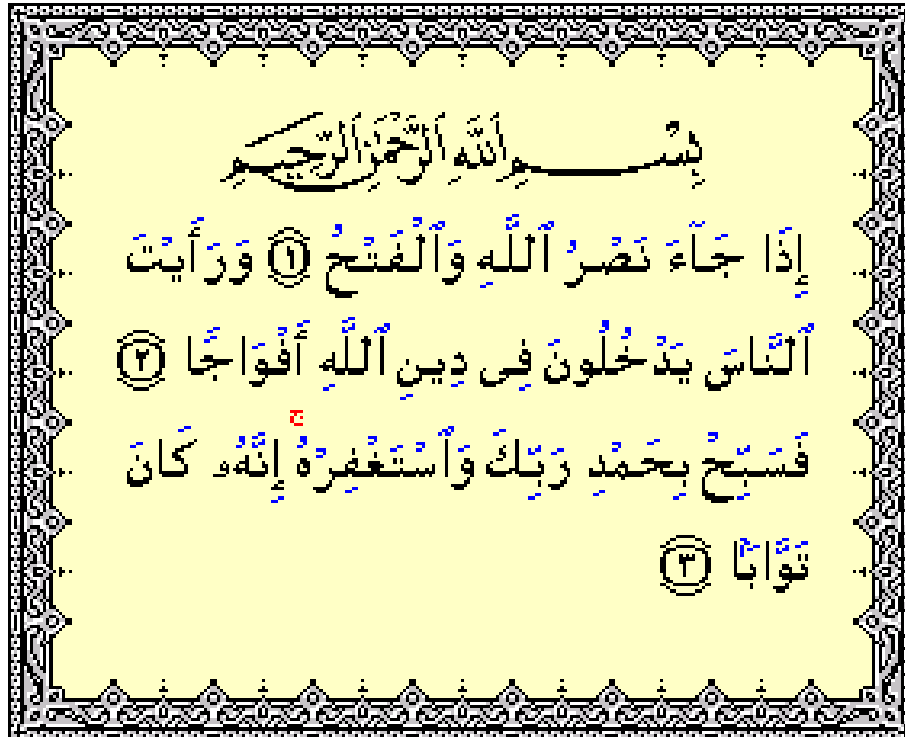 بِسْمِ ٱللَّهِ ٱلرَّحْمَٰنِ ٱلرَّحِيمِ
إِذَا جَآءَ نَصْرُ ٱللَّهِ وَٱلْفَتْحُ ١ وَرَأَيْتَ
ٱلنَّاسَ يَدْخُلُونَ فِى دِينِ ٱللَّهِ أَفْوَاجًا ٢
فَسَبِّحْ بِحَمْدِ رَبِّكَ وَٱسْتَغْفِرْهُ ۚ إِنَّهُۥ كَانَ
تَوَّابًۢا ٣